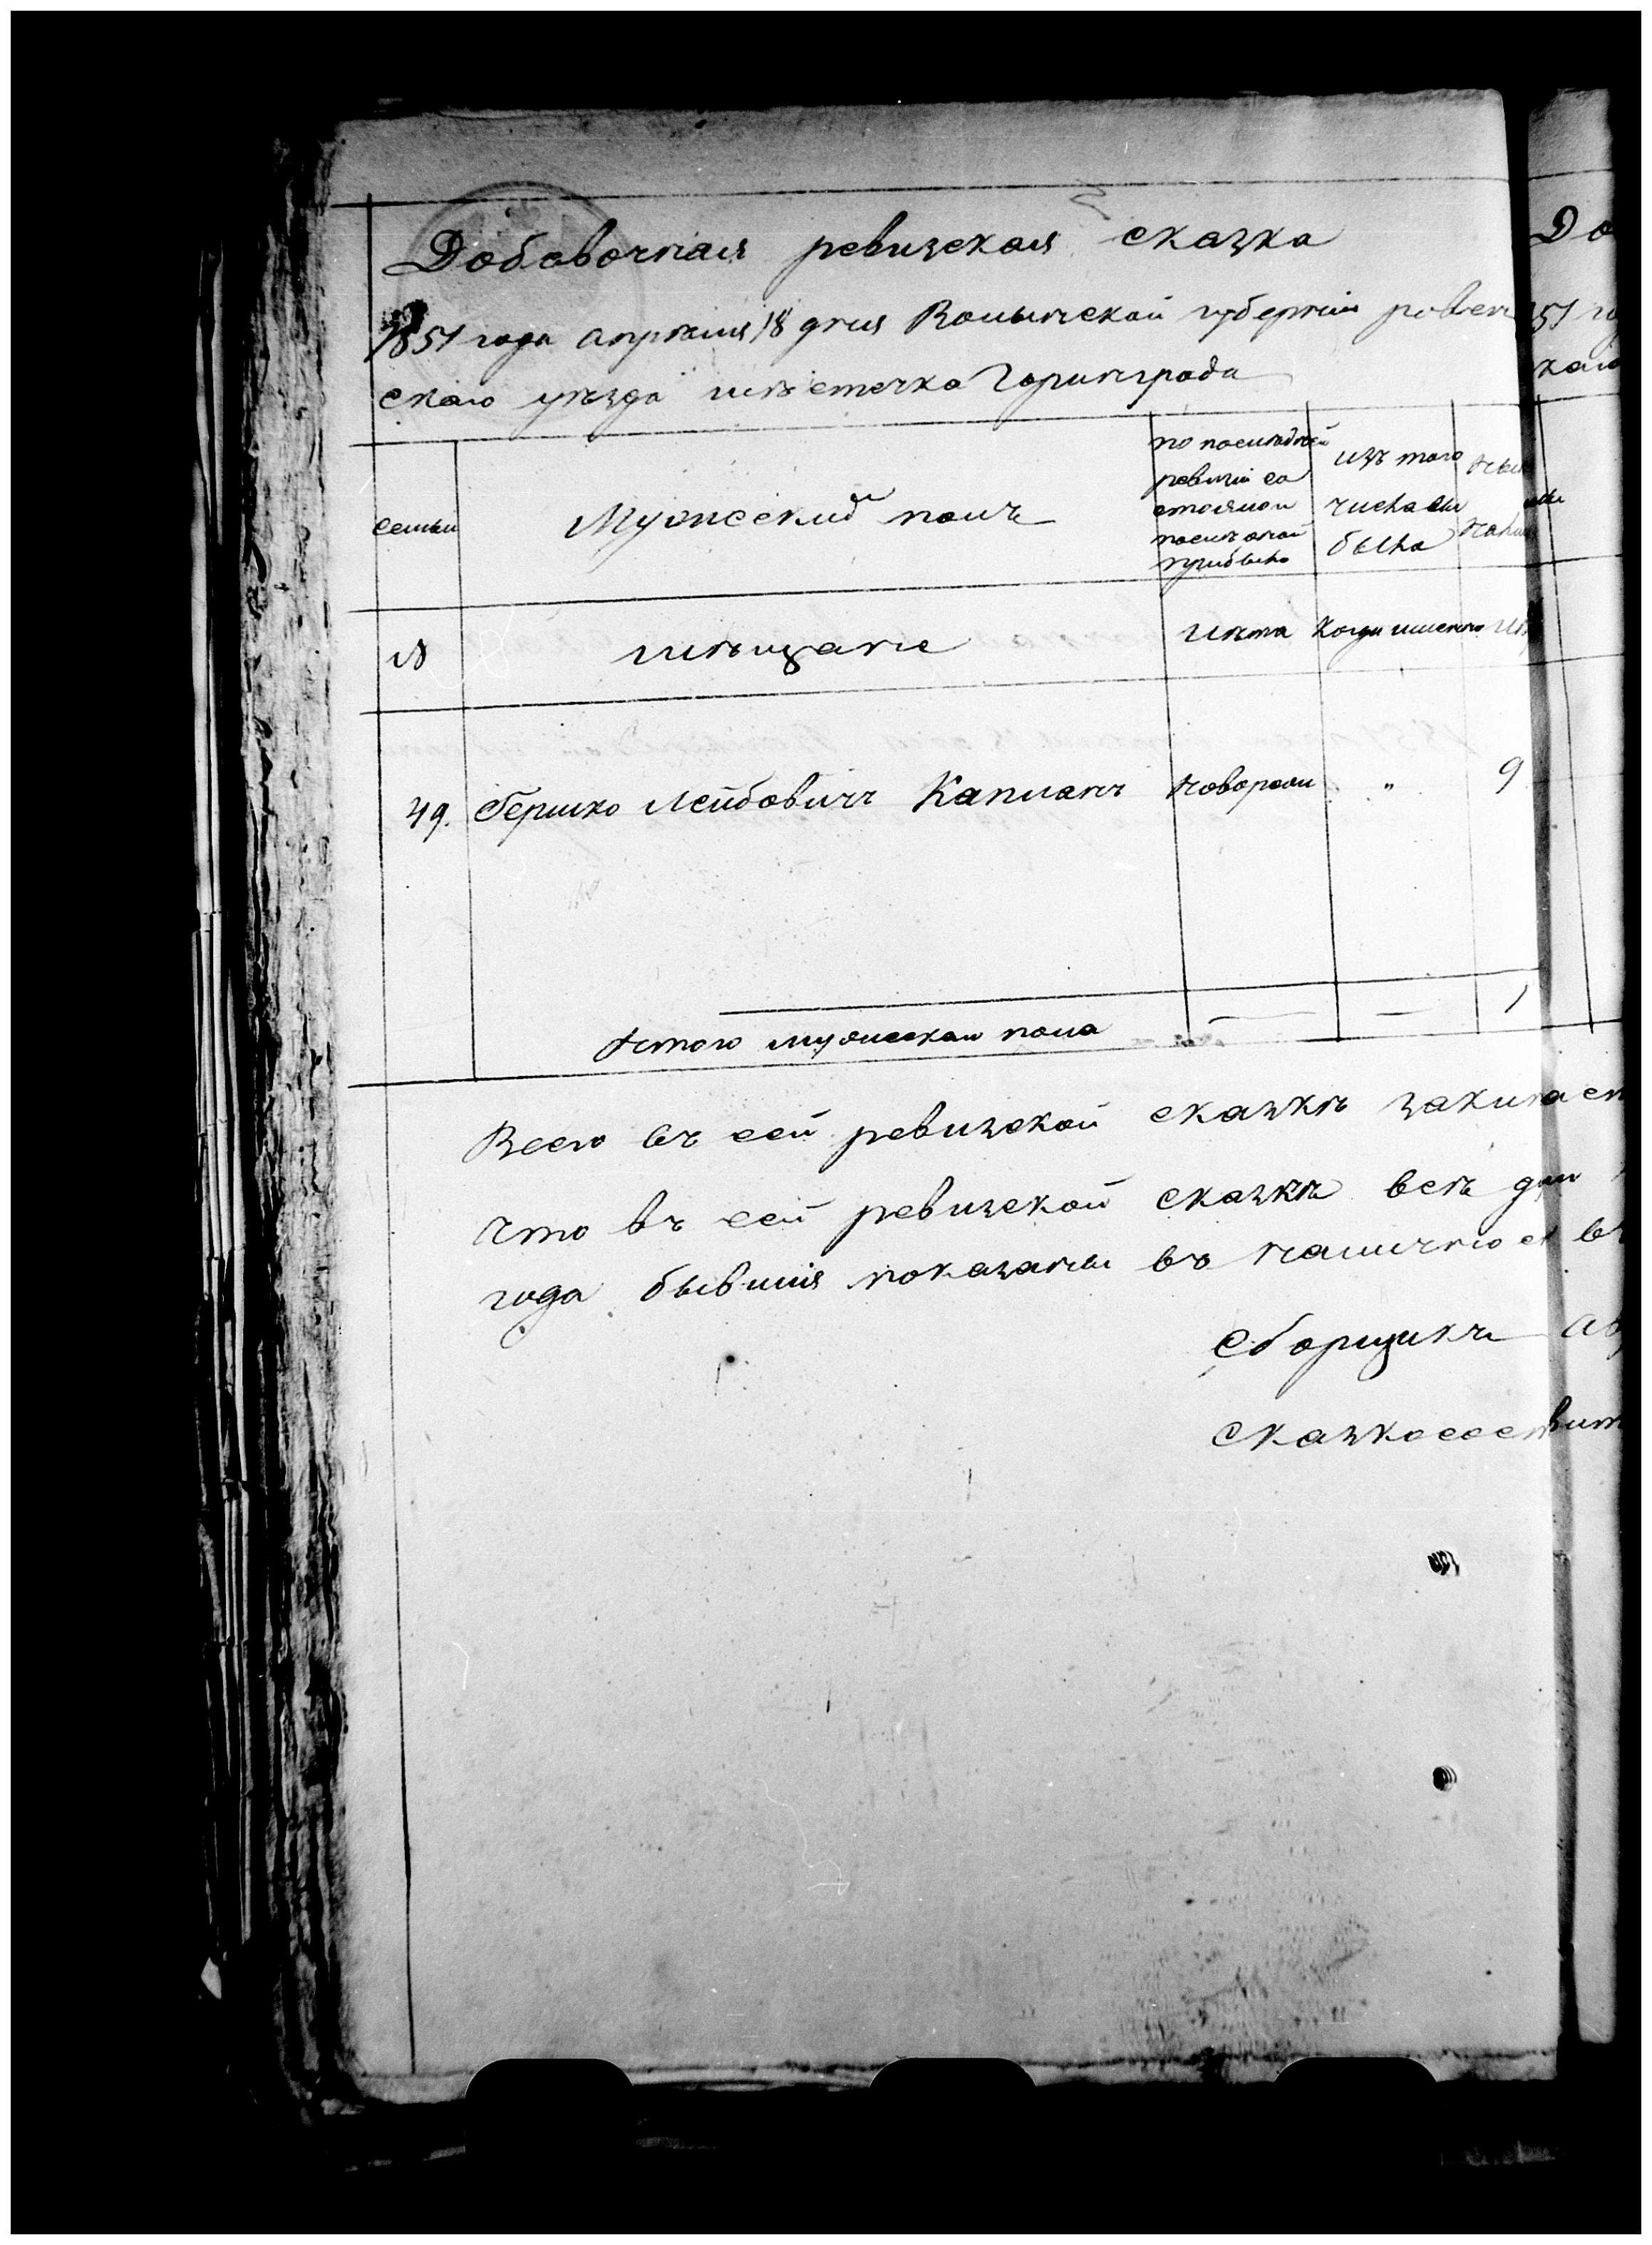 Добавочная ревизская сказка
1851 года апрѣля 18 дня Волынской губерніи ровен
скаго уѣзда мѣстечка Горинграда
семьи
Мужескій полъ
по послѣдней
ревизіи со
стояло и
послѣ оной
прибыло
изъ того
числа вы
было
Нынѣ
на лицо
№
мѣщане
лѣта
когда именно
49.
Гершко Лейбовичъ Капланъ
новорож
"
9
Итого мужеска пола
—
—
1
Всего въ сей ревизской сказкѣ
Что въ сей ревизской сказкѣ всѣ
года бывшія показаны въ
Сборщикъ
До